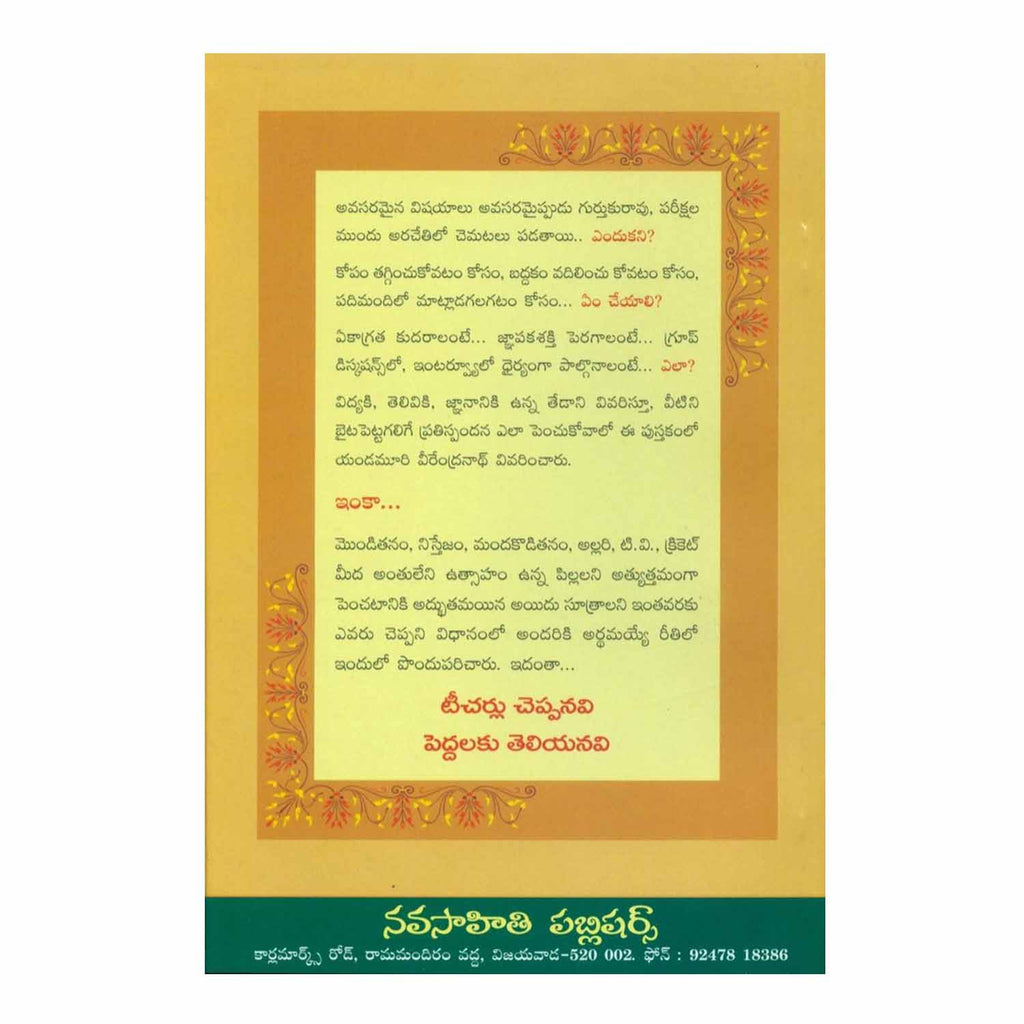 అవసరమైన విషయాలు అవసరమైప్పుడు గుర్తుకురావు, పరీక్షల
ముందు అరచేతిలో చెమటలు పడతాయి.. ఎందుకని?
కోపం తగ్గించుకోవటం కోసం, బద్దకం వదిలించు కోవటం కోసం,
పదిమందిలో మాట్లాడగలగటం కోసం... ఏం చేయాలి?
ఏకాగ్రత కుదరాలంటే... జ్ఞాపకశక్తి పెరగాలంటే... గ్రూప్
డిస్కషన్స్‌లో, ఇంటర్వ్యూలో ధైర్యంగా పాల్గొనాలంటే... ఎలా?
విద్యకి, తెలివికి, జ్ఞానానికి ఉన్న తేడాని వివరిస్తూ, వీటిని
బైటపెట్టగలిగే ప్రతిస్పందన ఎలా పెంచుకోవాలో ఈ పుస్తకంలో
యండమూరి వీరేంద్రనాథ్ వివరించారు.
ఇంకా...
మొండితనం, నిస్తేజం, మందకొడితనం, అల్లరి, టి.వి., క్రికెట్
మీద అంతులేని ఉత్సాహం ఉన్న పిల్లలని అత్యుత్తమంగా
పెంచటానికి అద్భుతమయిన అయిదు సూత్రాలని ఇంతవరకు
ఎవరు చెప్పని విధానంలో అందరికి అర్థమయ్యే రీతిలో
ఇందులో పొందుపరిచారు. ఇదంతా...
టీచర్లు చెప్పనవి
పెద్దలకు తెలియనవి
నవసాహితి పబ్లిషర్స్
కార్ల్‌మార్క్స్ రోడ్, రామమందిరం వద్ద, విజయవాడ-520 002. ఫోన్ : 92478 18386